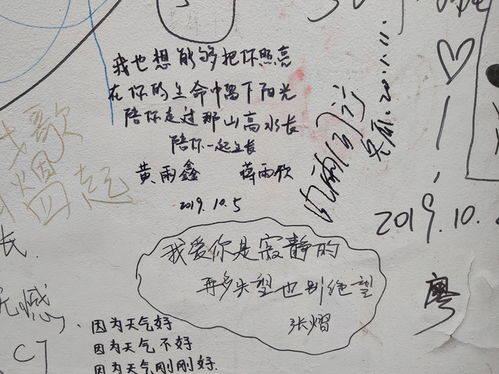 我也想能够把你照亮
在你的生命中留下阳光
陪你走过那山高水长
陪你一起生长
黄雨鑫 蒋雨歌
2019.10.5
我爱你是寂静的
再多失望也别绝望
张熠
因为天气好
因为天气不好
因为天气刚刚好.
风雨同行
2019.10.
粤
歌
烟
四起
长.
无憾
C7